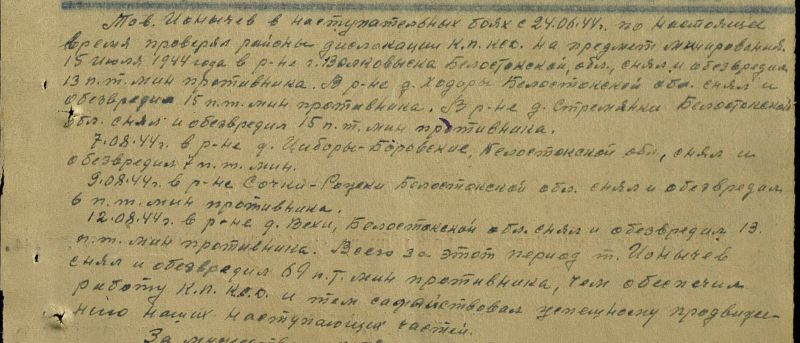 Тов. Ионычев в наступательных боях с 24.06.44г. по настоящее
время проверял районы дислокации К.П. ксо. на предмет минирования.
15 июля 1944 года в р-не г. Волковыска Белостокской, обл., снял и обезвредил
13 п.т. мин противника. В р-не д. Ходоры Белостокской обл. снял и
обезвредил 15 п.т. мин противника. В р-не д. Стремянки Белостокской
обл. снял и обезвредил 15 п.т. мин противника.
7.08.44г. в р-не д. Циборы-Боровские, Белостокской обл, снял и
обезвредил 7 п.т. мин.
9.08.44г. в р-не Сочки- Белостокской обл. снял и обезвредил
6 п.т. мин противника.
12.08.44г. в р-не д. Вехи, Белостокской обл. снял и обезвредил 13
п.т. мин противника. Всего за этот период т. Ионычев
снял и обезвредил 69 п.т. мин противника, чем обеспечил
работу К.П. ксо. и тем содействовал успешному продвиже-
нию наших наступающих частей.
За